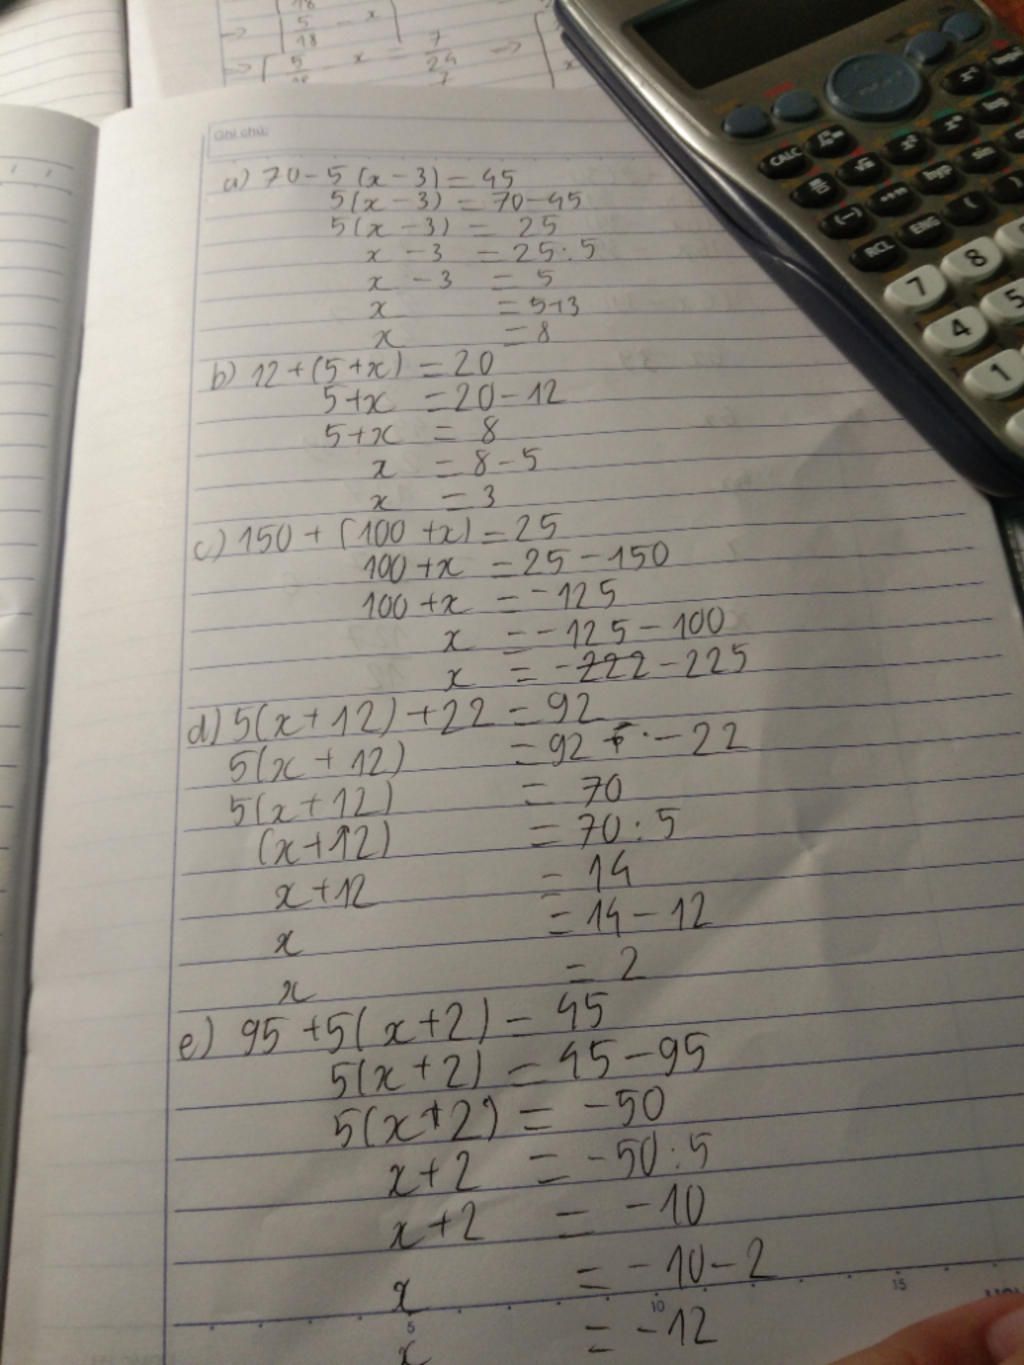 18
→ | 5/18 - x |
→ [ 5 x = 7/24 →
Ghi chú:
a) 70 - 5 (x - 3) = 45
5(x - 3) = 70 - 45
5(x - 3) = 25
x - 3 = 25 : 5
x - 3 = 5
x = 5+3
x = 8
b) 12 + (5 + x) = 20
5 + x = 20 - 12
5 + x = 8
x = 8 - 5
x = 3
c) 150 + (100 + x) = 25
100 + x = 25 - 150
100 + x = -125
x = -125 - 100
x = -222 -225
d) 5(x + 12) + 22 = 92
5(x + 12) = 92 - 22
5(x + 12) = 70
(x + 12) = 70 : 5
x + 12 = 14
x = 14 - 12
x = 2
e) 95 + 5(x + 2) = 45
5(x + 2) = 45 - 95
5(x + 2) = -50
x + 2 = -50 : 5
x + 2 = -10
x = -10 - 2
x = -12
5 10 15
CALC
hyp sin
RCL ENG (
7 8
4 5
1